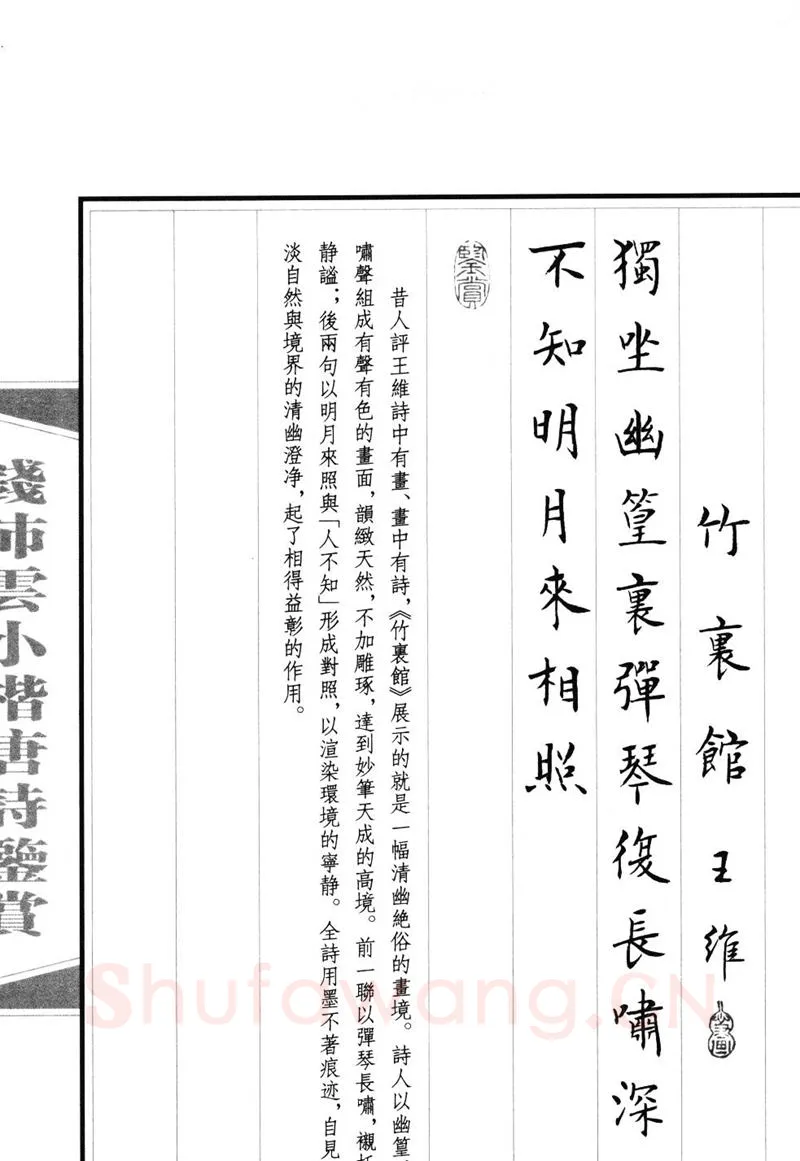 竹裏館 王維
獨坐幽篁裏彈琴復長嘯深
不知明月來相照
鑒賞
昔人評王維詩中有畫、畫中有詩，《竹裏館》展示的就是一幅清幽絶俗的畫境。詩人以幽篁、
嘯聲組成有聲有色的畫面，韻緻天然，不加雕琢，達到妙筆天成的高境。前一聯以彈琴長嘯，襯托
静謐；後兩句以明月來照與「人不知」形成對照，以渲染環境的寧静。全詩用墨不著痕迹，自見
淡自然與境界的清幽澄净，起了相得益彰的作用。
錢沛雲小楷唐詩鑒賞
Shufawang.CN